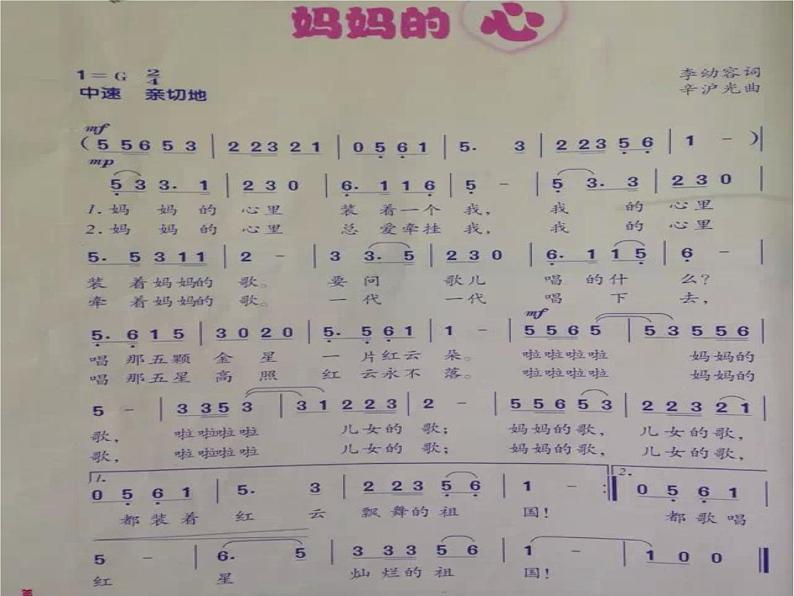 妈妈的 心
1=G 2/4
李幼容词
中速 亲切地
辛沪光曲
mf
(5 5 6 5 3 | 2 2 3 2 1 | 0 5 6 1 | 5. 3 | 2 2 3 5 6 | 1 - )|
mp
5 3 3. 1 | 2 3 0 | 6. 1 1 6 | 5 - | 5 3. 3 | 2 3 0 |
1. 妈 妈 的 心里 装 着一个 我, 我 的 心里
2. 妈 妈 的 心里 总 爱牵挂 我, 我 的 心里
5. 5 3 1 1 | 2 - | 3 3 3. 5 | 2 3 0 | 6. 1 1 5 | 6 - |
装 着妈妈的 歌。 要 问 歌儿 唱 的什 么?
牵 着妈妈的 歌。 一 代 一代 唱 下 去,
mf
5. 6 1 5 | 3 0 2 0 | 5. 5 6 1 | 1 - | 5 5 6 5 | 5 3 5 5 6 |
唱 那五颗 金 星 一 片红云 朵。 啦啦啦啦 妈妈的
唱 那五星 高 照 红 云永不 落。 啦啦啦啦 妈妈的
5 - | 3 3 5 3 | 3 1 2 2 3 | 2 - | 5 5 6 5 3 | 2 2 3 2 1 |
歌, 啦啦啦啦 儿女的 歌; 妈妈的 歌, 儿女的 歌,
歌, 啦啦啦啦 儿女的 歌; 妈妈的 歌, 儿女的 歌,
1. 2.
0 5 6 1 | 5. 3 | 2 2 3 5 6 | 1 - :| 0 5 6 1 |
都装着 红 云 飘舞的 祖 国! 都歌唱
5 - | 6. 5 | 3 3 3 5 6 | 1 - | 1 0 0 ‖
红 星 灿 烂的 祖 国!